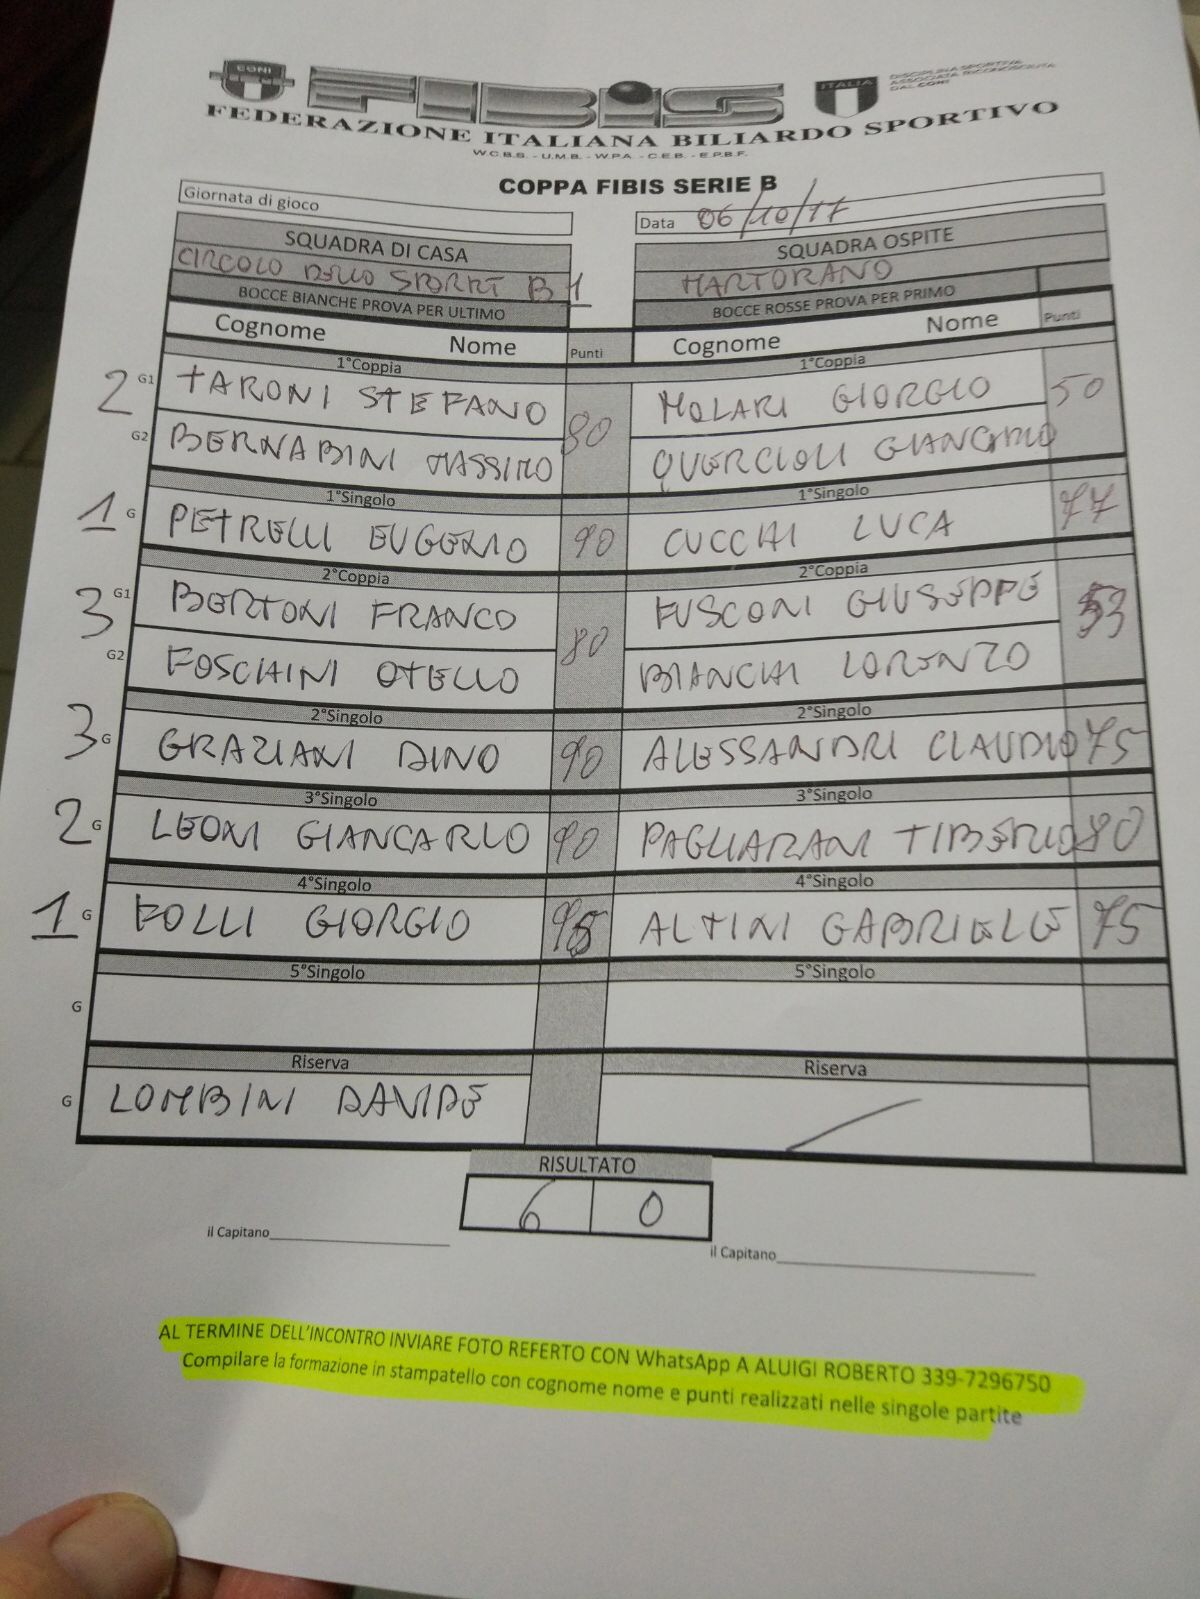 CONI FIBiS ITALIA DISCIPLINA SPORTIVA
ASSOCIATA RICONOSCIUTA
DAL CONI
FEDERAZIONE ITALIANA BILIARDO SPORTIVO
W.C.B.S. - U.M.B. - W.P.A. - C.E.B. - E.P.B.F.
COPPA FIBIS SERIE B
Giornata di gioco Data 06/10/17
SQUADRA DI CASA SQUADRA OSPITE
CIRCOLO DELLO SPORT B1 MARTORANO
BOCCE BIANCHE PROVA PER ULTIMO BOCCE ROSSE PROVA PER PRIMO
Cognome Nome Punti Cognome Nome Punti
1°Coppia 1°Coppia
2 G1 TARONI STEFANO 80 MOLARI GIORGIO 50
G2 BERNABINI MASSIMO QUERCIOLI GIANCARLO
1°Singolo 1°Singolo
1 G PETRELLI EUGENIO 90 CUCCHI LUCA 77
2°Coppia 2°Coppia
3 G1 BERTONI FRANCO 80 FUSCONI GIUSEPPE 53
G2 FOSCHINI OTELLO BIANCHI LORENZO
2°Singolo 2°Singolo
3 G GRAZIANI DINO 90 ALESSANDRI CLAUDIO 75
3°Singolo 3°Singolo
2 G LEONI GIANCARLO 90 PAGLIARANI TIBERIO 80
4°Singolo 4°Singolo
1 G FOLLI GIORGIO ALTINI GABRIELE 75
5°Singolo 5°Singolo
G
Riserva Riserva
G LOMBINI DAVIDE
RISULTATO
6 0
il Capitano il Capitano
AL TERMINE DELL'INCONTRO INVIARE FOTO REFERTO CON WhatsApp A ALUIGI ROBERTO 339-7296750
Compilare la formazione in stampatello con cognome nome e punti realizzati nelle singole partite